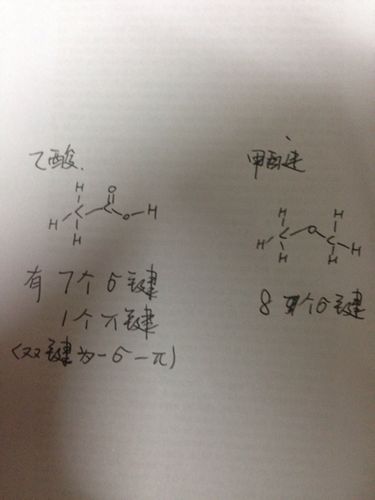 乙酸.
H
H-C-C-O-H
O
H
H
有7个σ键
1个π键
(双键为一σ一π)
甲醚
H H
H-C-O-C-H
H H
8个σ键